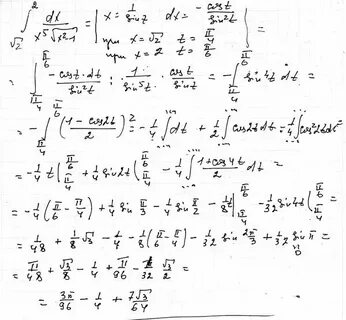 ∫_{√2}^{2} dx / (x⁵√(x²-1)) = | x = 1/sin t  dx = -cos t / sin² t ; при x = √2  t = π/4 ; при x = 2  t = π/6 | =
= ∫_{π/4}^{π/6} -cos t · dt / sin² t : 1/sin⁵ t · cos t / sin t = -∫_{π/4}^{π/6} sin⁴ t dt =
= -∫_{π/4}^{π/6} ((1 - cos 2t)/2)² = -1/4 ∫ dt + 1/2 ∫ cos 2t dt - 1/4 ∫ cos² 2t dt =
= -1/4 t |_{π/4}^{π/6} + 1/4 sin 2t |_{π/4}^{π/6} - 1/4 ∫ (1 + cos 4t)/2 dt =
= -1/4 (π/6 - π/4) + 1/4 sin π/3 - 1/4 sin π/2 - 1/8 t |_{π/4}^{π/6} - 1/32 sin 4t |_{π/4}^{π/6} =
= π/48 + 1/8 √3 - 1/4 - 1/8 (π/6 - π/4) - 1/32 sin 2π/3 + 1/32 sin π =
= π/48 + √3/8 - 1/4 + π/96 - 1/32 √3/2 =
= 3π/96 - 1/4 + 7√3/64